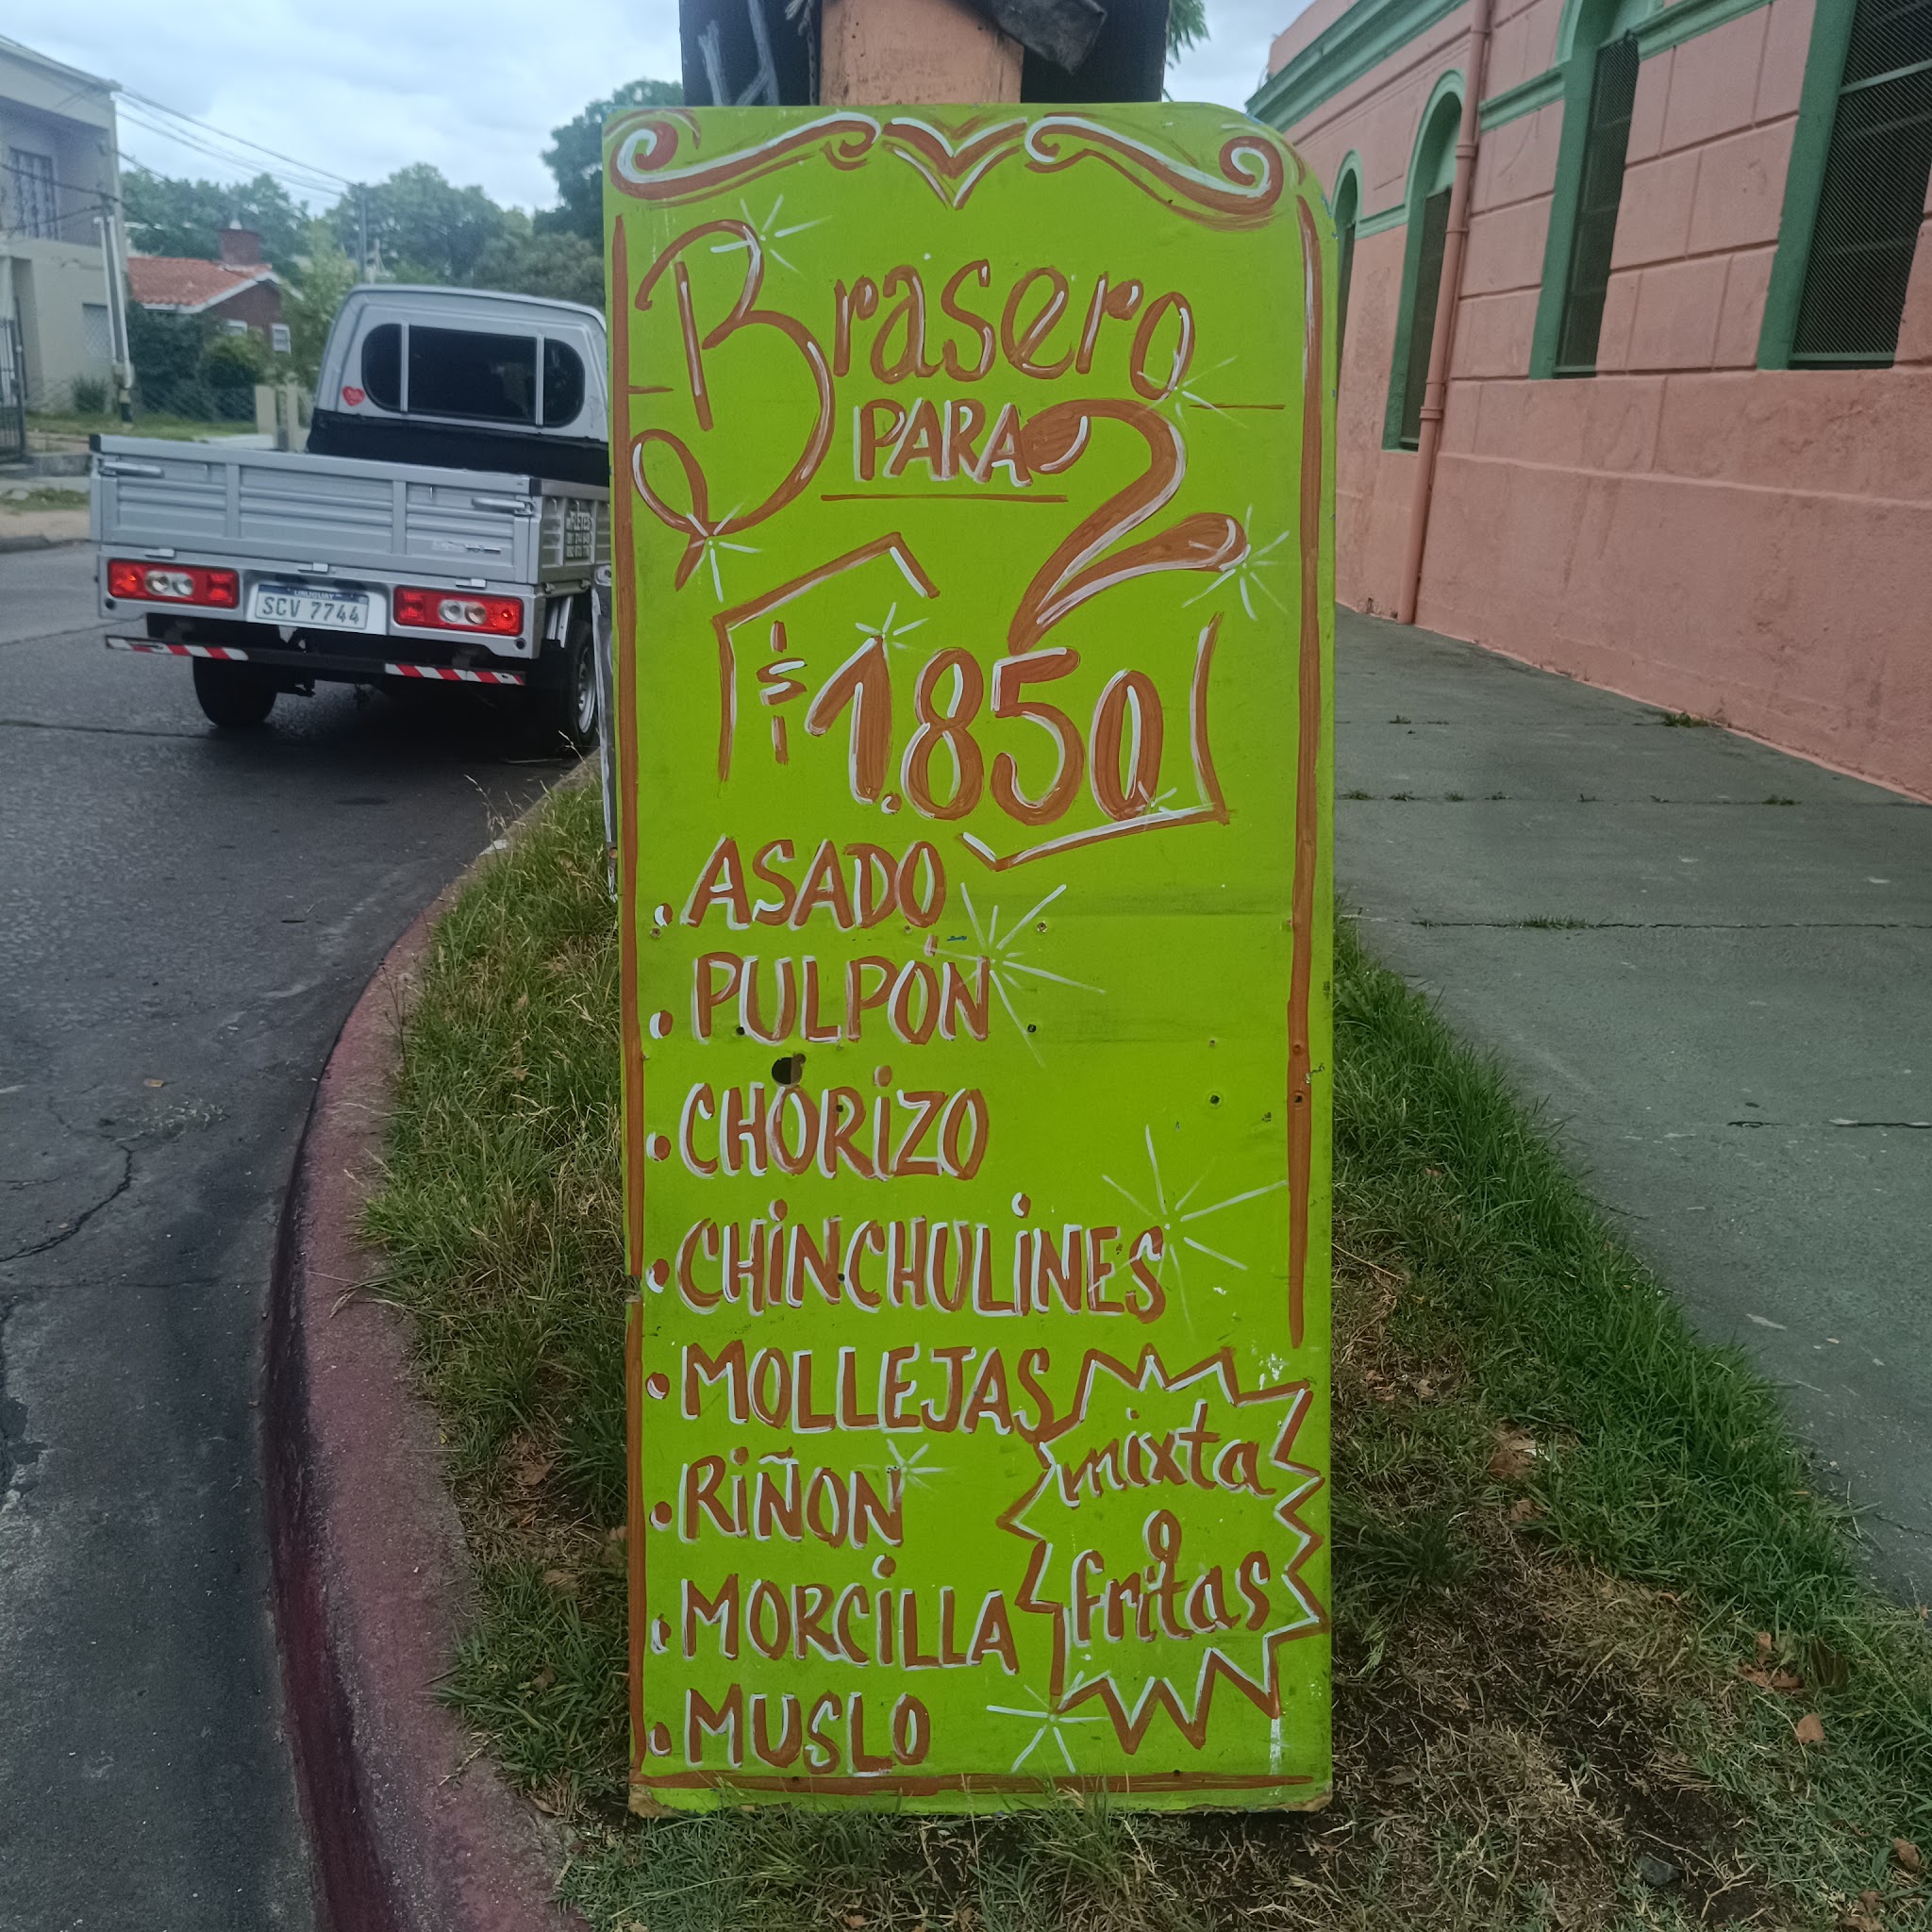 Brasero
PARA 2
$1.850
• ASADO
• PULPÓN
• CHORIZO
• CHINCHULINES
• MOLLEJAS
• RIÑON
• MORCILLA
• MUSLO
mixta
o
fritas
URUGUAY
SCV 7744